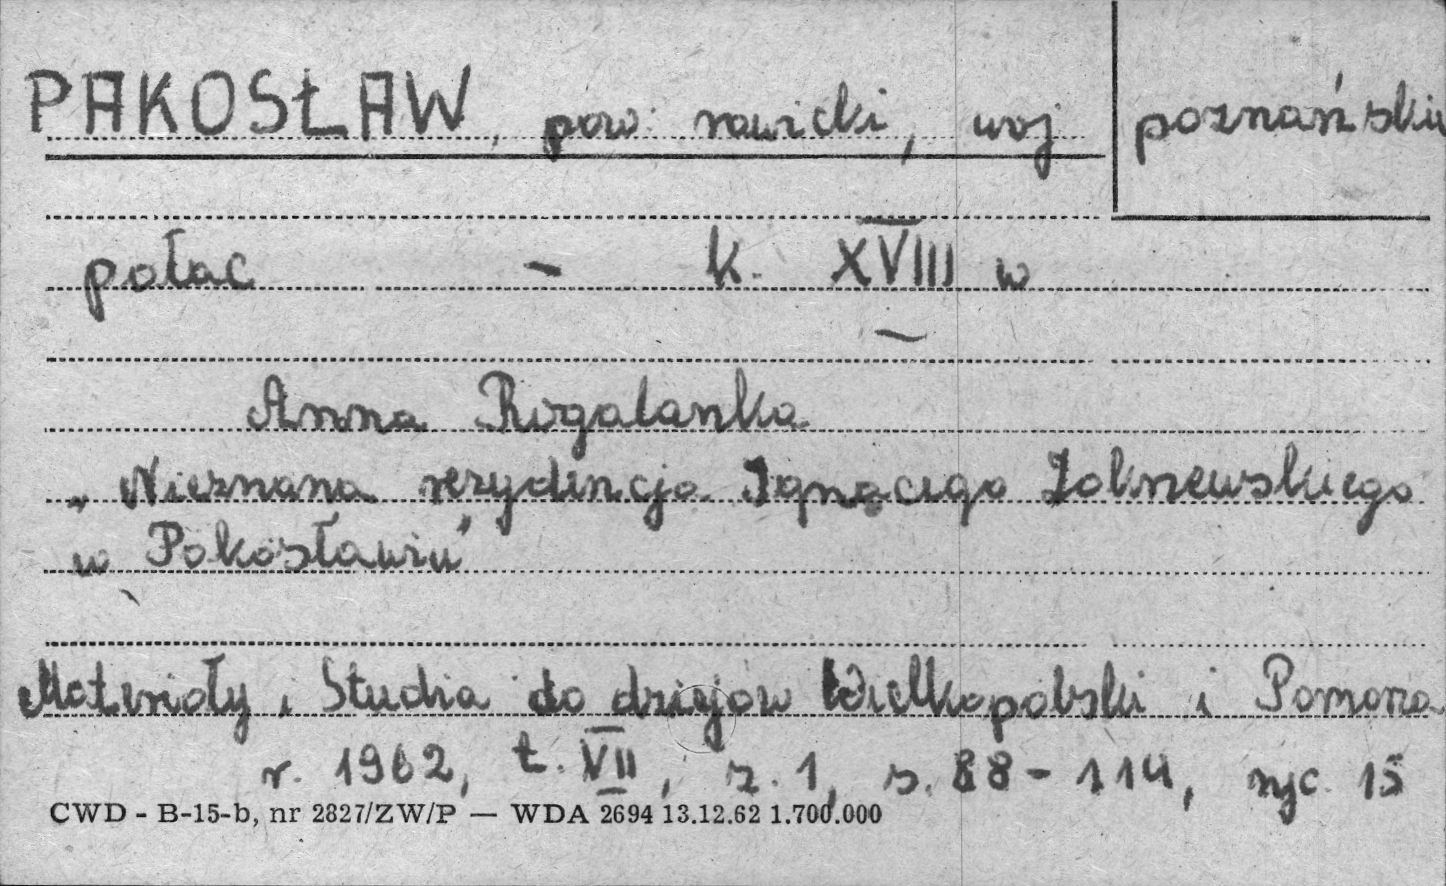 PAKOSŁAW, pow. rawicki, woj poznańskie
pałac - k. XVIII w
Anna Rogalanka
„Nieznana rezydencja Ignacego Zakrzewskiego
w Pakosławiu"
Materiały i Studia do dziejów Wielkopolski i Pomorza
r. 1962, t. VII, z. 1, s. 88-114, ryc. 15
CWD - B-15-b, nr 2827/ZW/P — WDA 2694 13.12.62 1.700.000